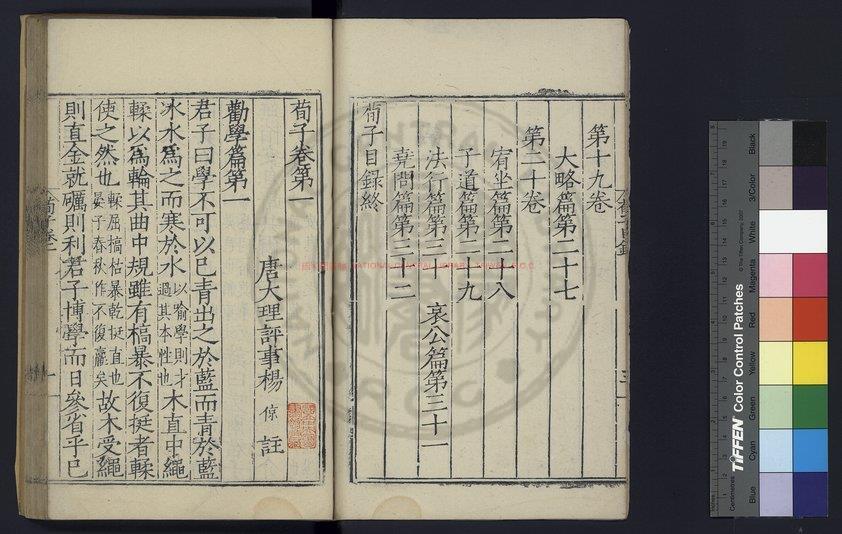 第十九卷
大略篇第二十七
第二十卷
宥坐篇第二十八
子道篇第二十九
法行篇第三十 哀公篇第三十一
堯問篇第三十二
荀子目録終
荀子卷第一
唐大理評事楊 倞 註
勸學篇第一
君子曰學不可以已青出之於藍而青於藍
冰水爲之而寒於水以喻學則才過其本性也木直中繩
輮以爲輪其曲中規雖有槁暴不復挺者輮
使之然也輮屈槁枯暴乾挺直也晏子春秋作不復羸矣故木受繩
則直金就礪則利君子博學而日參省乎已
NATIONAL CENTRAL LIBRARY, TAIWAN, R.O.C.
TIFFEN Color Control Patches
© The Tiffen Company, 2007
Centimetres
Blue
Cyan
Green
Yellow
Red
Magenta
White
3/Color
Black